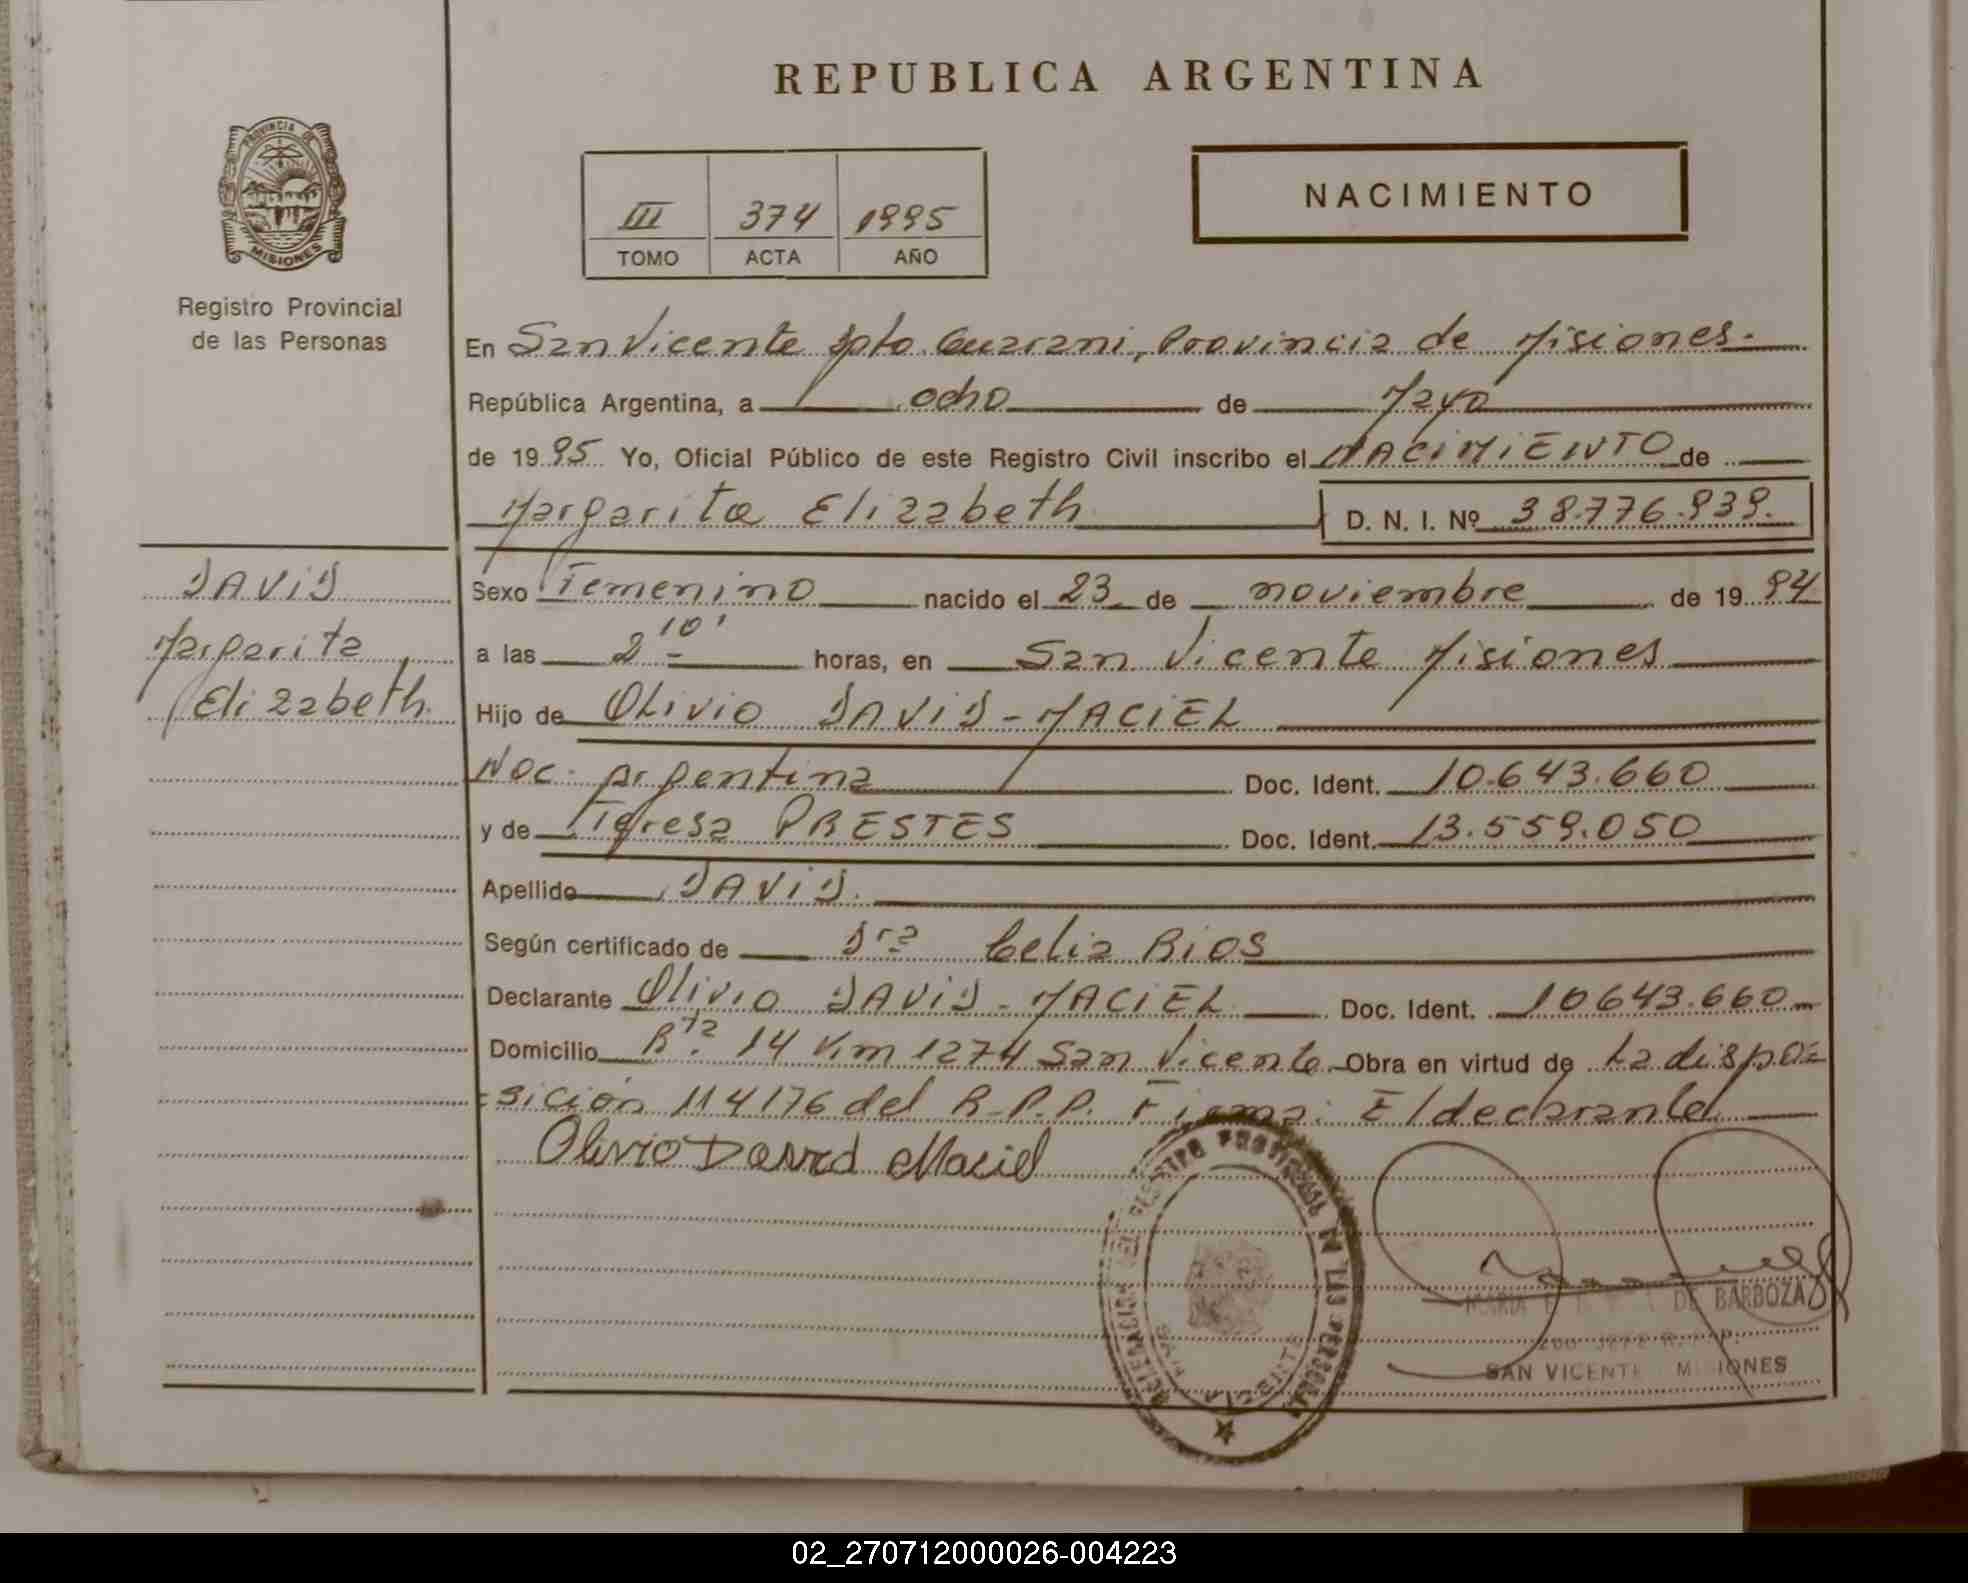 REPUBLICA ARGENTINA
PROVINCIA DE
MISIONES
Registro Provincial
de las Personas
III 374 1995
TOMO ACTA AÑO
NACIMIENTO
En San Vicente Dpto Guarani, Provincia de Misiones.
República Argentina, a ocho de Mayo
de 1995 Yo, Oficial Público de este Registro Civil inscribo el NACIMIENTO de
Margarita Elizabeth D. N. I. Nº 38.776.939.
DAVID
Margarita
Elizabeth.
Sexo Femenino nacido el 23 de noviembre de 1994
a las 2 10' horas, en San Vicente Misiones
Hijo de Olivio DAVID - MACIEL
Nac. Argentina Doc. Ident. 10.643.660
y de Teresa PRESTES Doc. Ident. 13.559.050
Apellido DAVID.
Según certificado de Dra Celia Rios
Declarante Olivio DAVID - MACIEL Doc. Ident. 10643.660
Domicilio Rta. 14 Km 1274 San Vicente Obra en virtud de La dispo=
=sición 114176 del R.P.P. Firma: El declarante
Olivio David Maciel
REGISTRO PROVINCIAL DE LAS PERSONAS
MARIA DE BARBOZA
SAN VICENTE MISIONES
02_270712000026-004223